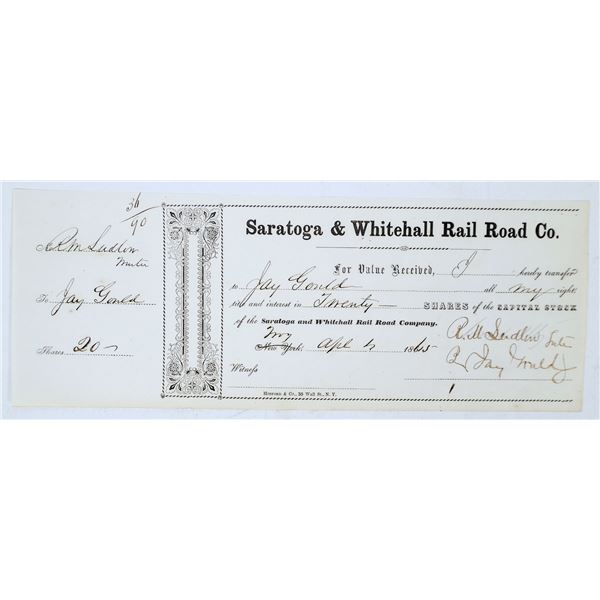 36
90
R M Ludlow
To Jay Gould
Shares 20
Saratoga & Whitehall Rail Road Co.
For Value Received, I hereby transfer
to Jay Gould all my right,
title and interest in Twenty SHARES of the CAPITAL STOCK
of the Saratoga and Whitehall Rail Road Company.
Troy
New York. Apl 4 1865
R. M Ludlow
Jay Gould
Witness
Hosford & Co., 56 Wall St., N. Y.